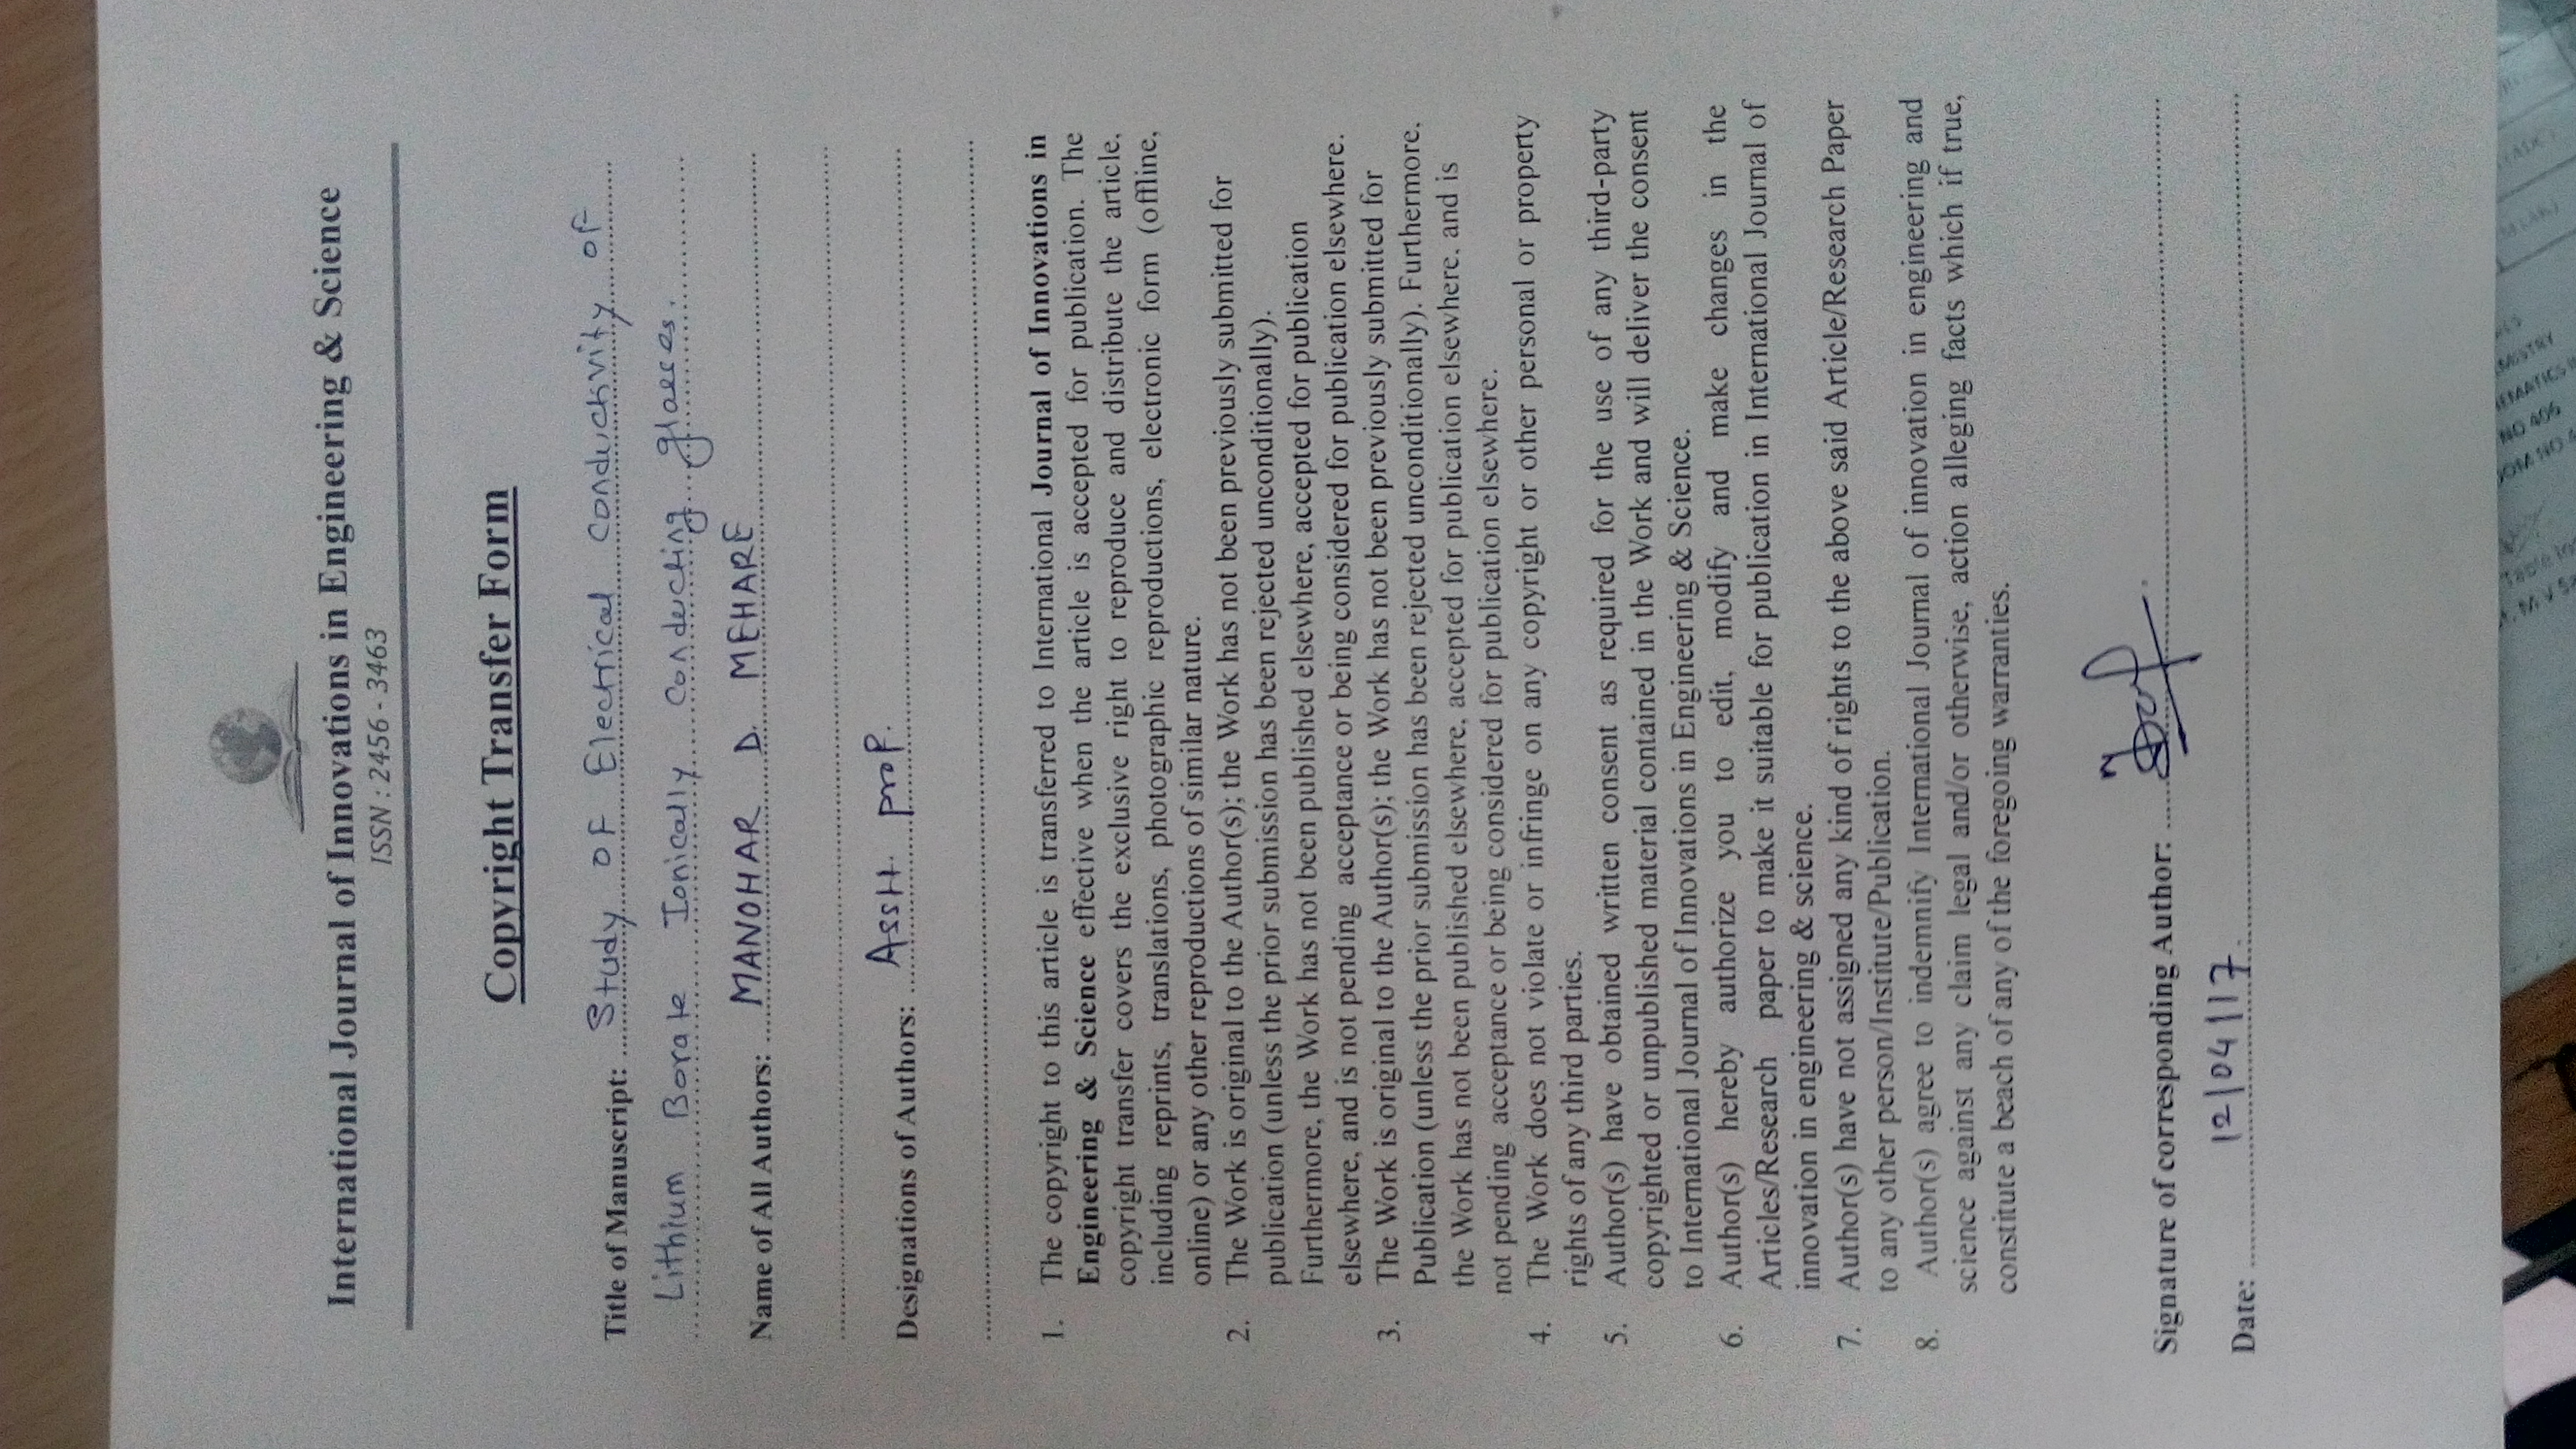 International Journal of Innovations in Engineering & Science
ISSN : 2456 - 3463
Copyright Transfer Form
Title of Manuscript: Study of Electrical conductivity of
Lithium Borate Ionically conducting glasses.
Name of All Authors: MANOHAR D. MEHARE
Designations of Authors: Asstt. prof.
1. The copyright to this article is transferred to International Journal of Innovations in
Engineering & Science effective when the article is accepted for publication. The
copyright transfer covers the exclusive right to reproduce and distribute the article,
including reprints, translations, photographic reproductions, electronic form (offline,
online) or any other reproductions of similar nature.
2. The Work is original to the Author(s); the Work has not been previously submitted for
publication (unless the prior submission has been rejected unconditionally).
Furthermore, the Work has not been published elsewhere, accepted for publication
elsewhere, and is not pending acceptance or being considered for publication elsewhere.
3. The Work is original to the Author(s); the Work has not been previously submitted for
Publication (unless the prior submission has been rejected unconditionally). Furthermore,
the Work has not been published elsewhere, accepted for publication elsewhere, and is
not pending acceptance or being considered for publication elsewhere.
4. The Work does not violate or infringe on any copyright or other personal or property
rights of any third parties.
5. Author(s) have obtained written consent as required for the use of any third-party
copyrighted or unpublished material contained in the Work and will deliver the consent
to International Journal of Innovations in Engineering & Science.
6. Author(s) hereby authorize you to edit, modify and make changes in the
Articles/Research paper to make it suitable for publication in International Journal of
innovation in engineering & science.
7. Author(s) have not assigned any kind of rights to the above said Article/Research Paper
to any other person/Institute/Publication.
8. Author(s) agree to indemnify International Journal of innovation in engineering and
science against any claim legal and/or otherwise, action alleging facts which if true,
constitute a beach of any of the foregoing warranties.
Signature of corresponding Author:
Date: 12/04/17
NO 406